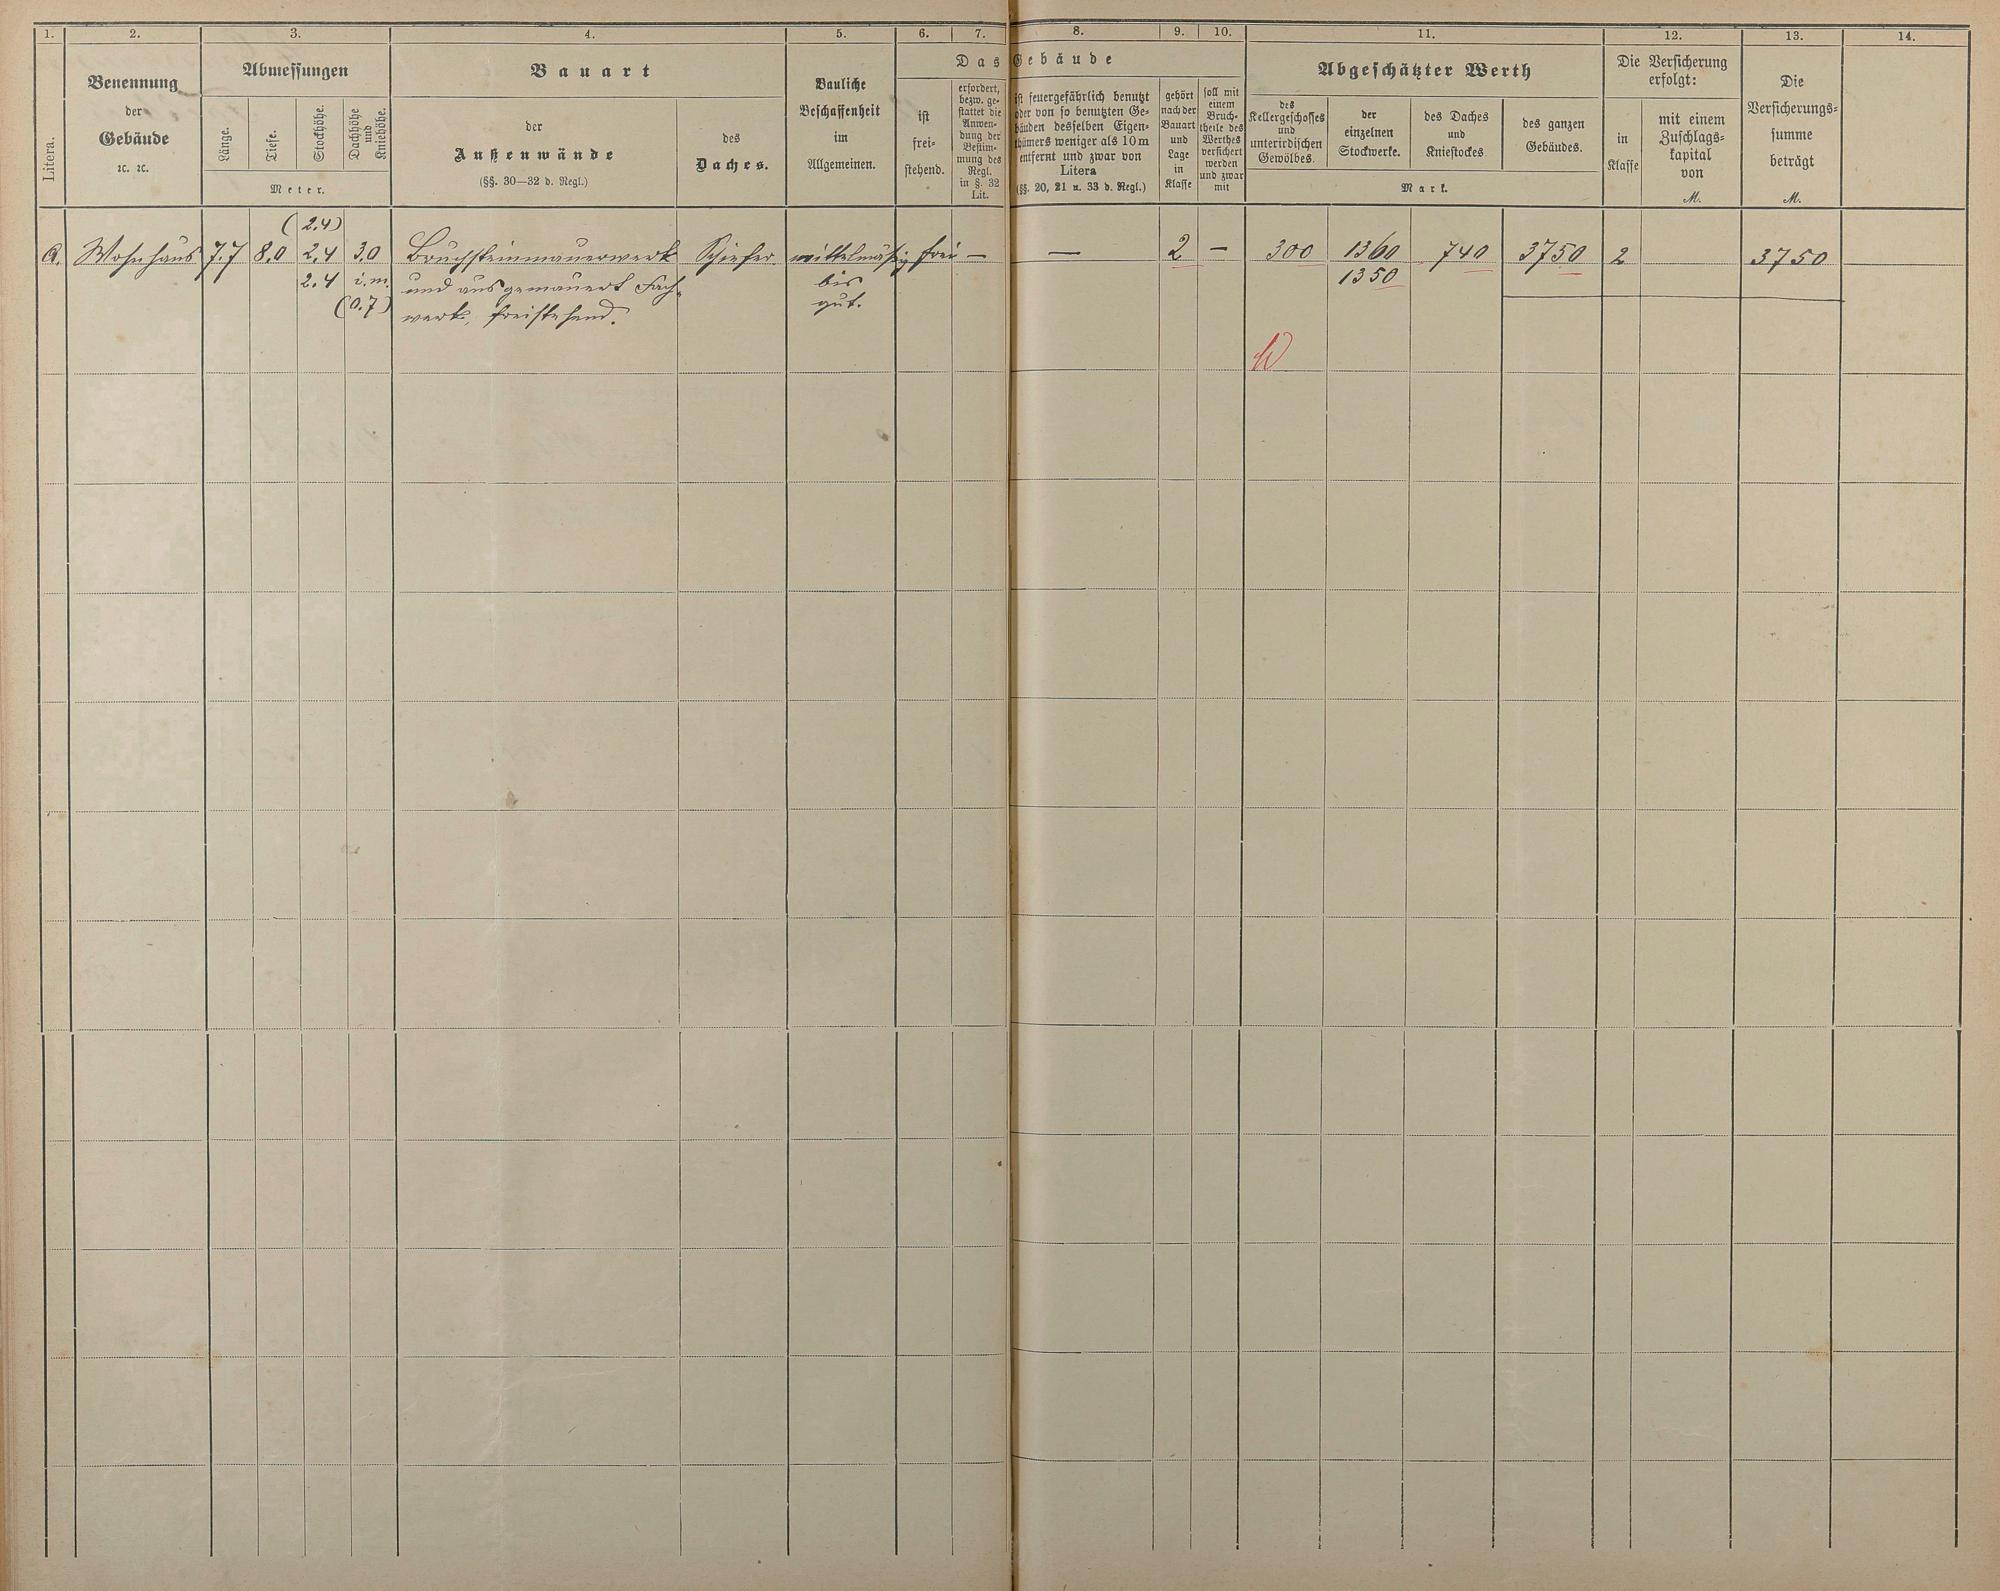 1. 2. 3. 4. 5. 6. 7. 8. 9. 10. 11. 12. 13. 14.
Litera.
Benennung
der
Gebäude
ꝛc. ꝛc.
Abmessungen
Länge.
Tiefe.
Stockhöhe.
Dachhöhe
und
Kniehöhe.
Meter.
Bauart
der
Außenwände
(§§. 30—32 d. Regl.)
des
Daches.
Bauliche
Beschaffenheit
im
Allgemeinen.
Das Gebäude
ist
frei-
stehend.
erfordert,
bezw. ge-
stattet die
Anwen-
dung der
Bestim-
mung des
Regl.
in §. 32
Lit.
ist feuergefährlich benutzt
oder von so benutzten Ge-
bäuden desselben Eigen-
thümers weniger als 10 m
entfernt und zwar von
Litera
(§§. 20, 21 u. 33 d. Regl.)
gehört
nach der
Bauart
und
Lage
in
Klasse
soll mit
einem
Bruch-
theile des
Werthes
versichert
werden
und zwar
mit
Abgeschätzter Werth
des
Kellergeschosses
und
unterirdischen
Gewölbes.
der
einzelnen
Stockwerke.
des Daches
und
Kniestockes.
des ganzen
Gebäudes.
Mark.
Die Versicherung
erfolgt:
in
Klasse
mit einem
Zuschlags-
kapital
von
M.
Die
Versicherungs-
summe
beträgt
M.
(2.4)
a. Wohnhaus 7.7 8.0 2.4 3.0 Bruchsteinmauerwerk Schiefer mittelmäßig frei — — 2 — 300 1360 740 3750 2 3750
2.4 i.m. und ausgemauert Fach- bis 1350
(0.7) werk, freistehend. gut.